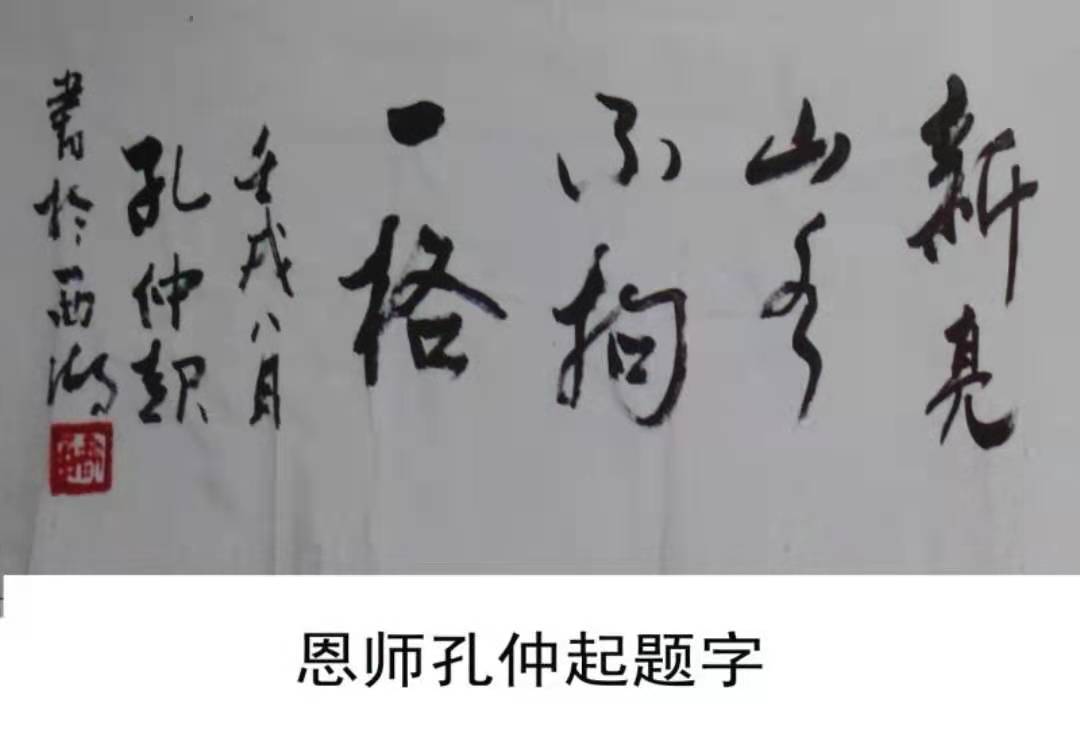 新亮
山水
不拘
一格
壬戌八月
孔仲起
書於西湖
恩师孔仲起题字